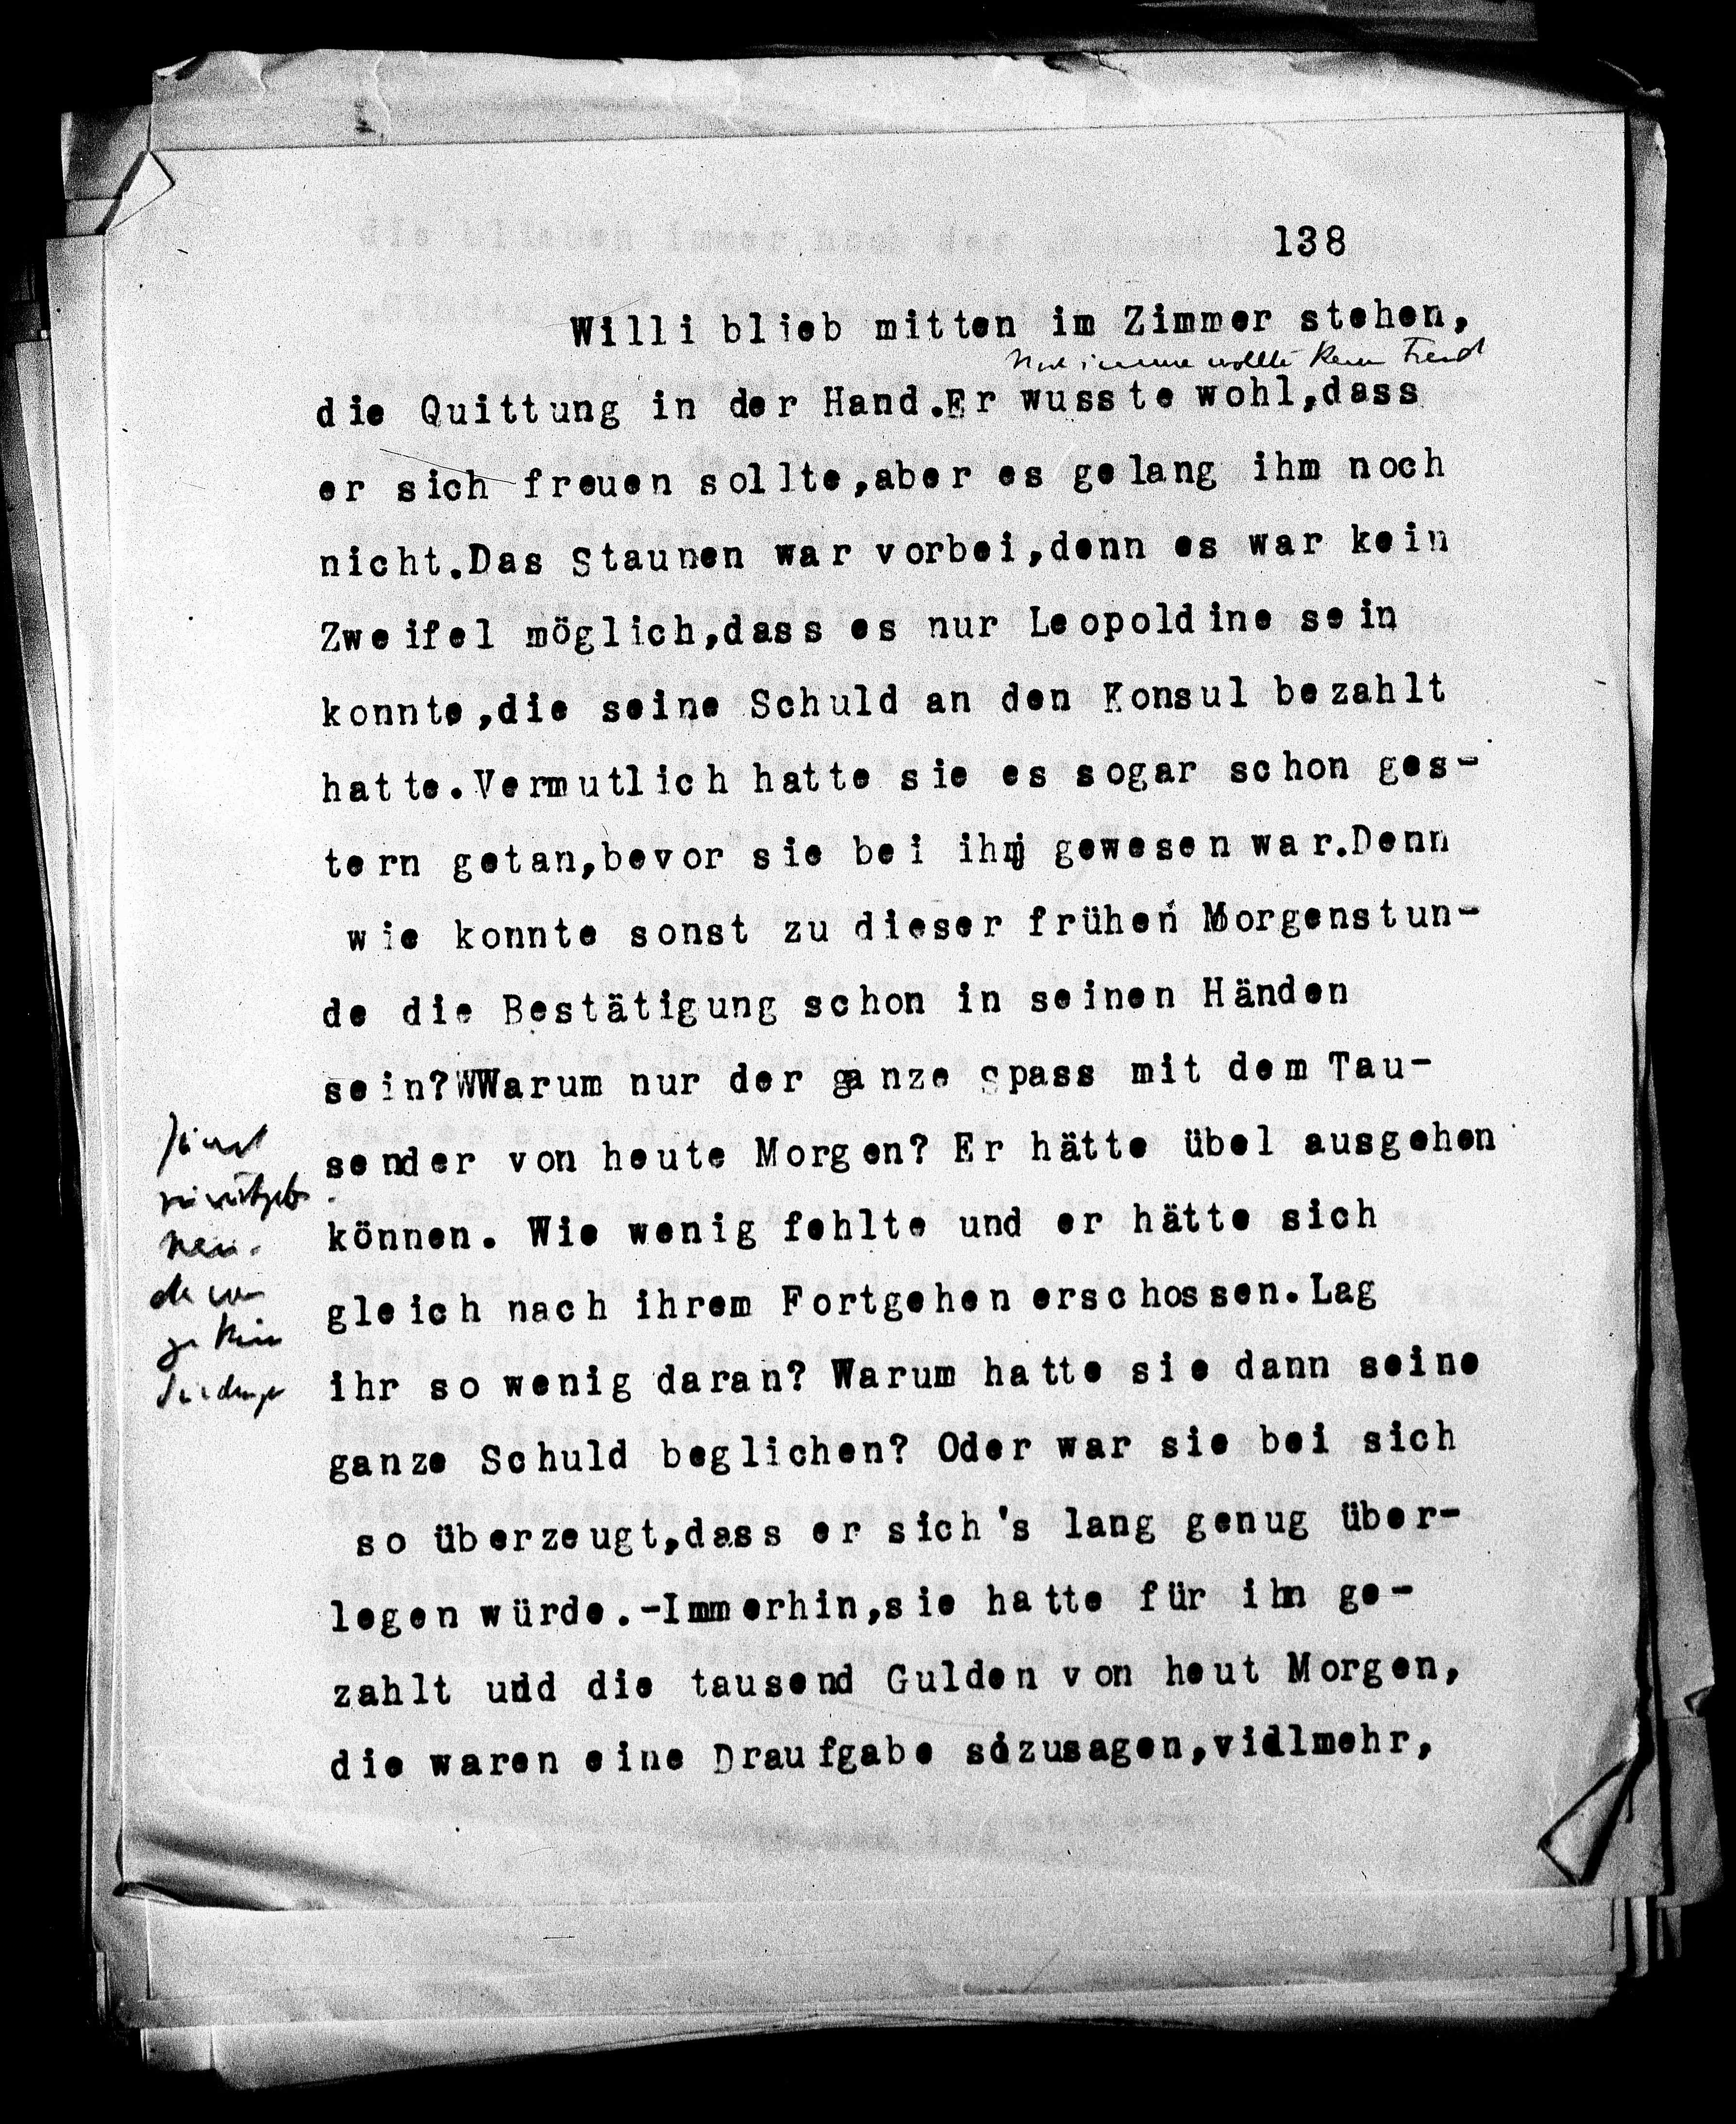 138
Willi blieb mitten im Zimmer stehen,
wollte Freud
die Quittung in der Hand.Er wusste wohl,dass
er sich freuen sollte,aber es gelang ihm noch
nicht.Das Staunen war vorbei,denn es war kein
Zweifel möglich,dass es nur Leopoldine sein
konnte,die seine Schuld an den Konsul bezahlt
hatte.Vermutlich hatte sie es sogar schon ges-
tern getan,bevor sie bei ihm gewesen war.Denn
wie konnte sonst zu dieser frühen Morgenstun-
de die Bestätigung schon in seinen Händen
sein?WWarum nur der ganze Spass mit dem Tau-
sender von heute Morgen? Er hätte übel ausgehen
können. Wie wenig fehlte und er hätte sich
gleich nach ihrem Fortgehen erschossen.Lag
ihr so wenig daran? Warum hatte sie dann seine
ganze Schuld beglichen? Oder war sie bei sich
so überzeugt,dass er sich's lang genug über-
legen würde.-Immerhin,sie hatte für ihn ge-
zahlt und die tausend Gulden von heut Morgen,
die waren eine Draufgabe sozusagen,vielmehr,